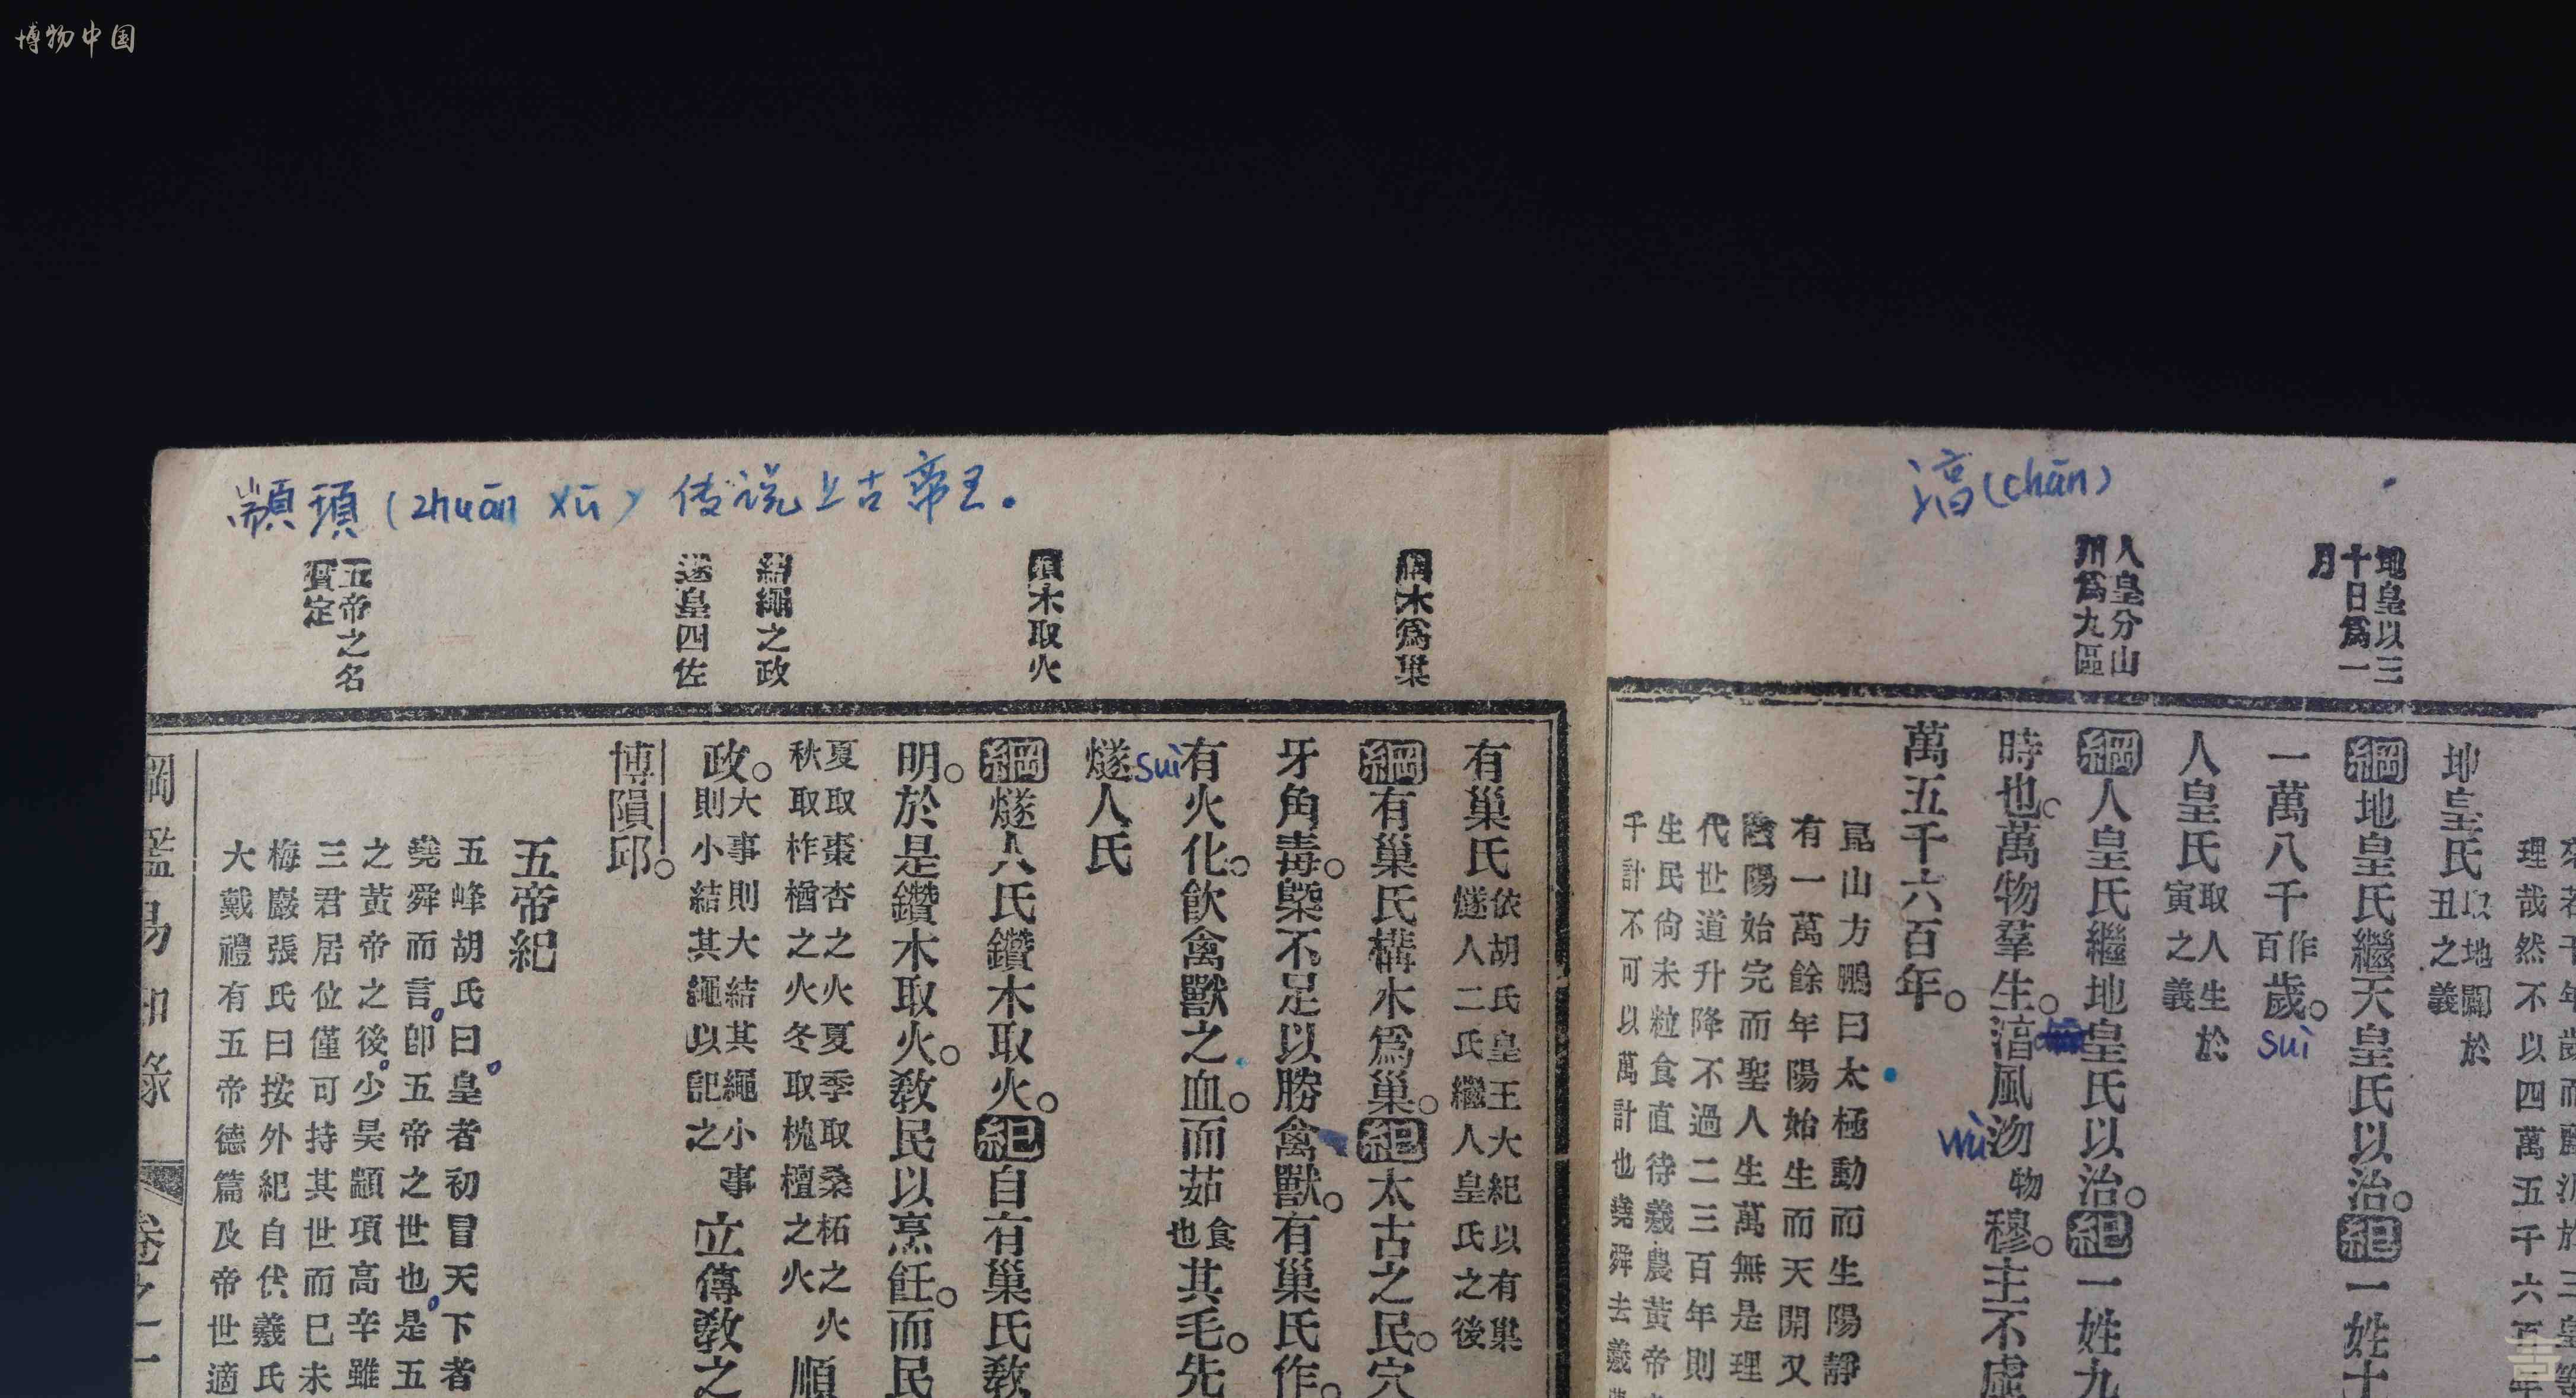 博物中国
淯(chān)
地皇以三
十日爲一
月
人皇分山
川爲九區
理哉然不以四萬五千六百
地皇氏
取地闢於
丑之義
綱地皇氏繼天皇氏以治。紀一姓十
一萬八千
作
百
歲。
suì
人皇氏
取人生於
寅之義
綱人皇氏繼地皇氏以治。紀一姓九
時也。萬物羣生。淯風沕
物
穆。主不虛
wù
萬五千六百年。
昆山方鵬曰太極動而生陽靜
有一萬餘年陽始生而天開又
陰陽始完而聖人生萬無是理
代世道升降不過二三百年則
生民尙未粒食直待羲農黃帝
千計不可以萬計也堯舜去羲
顓頊(zhuān xū)传说上古帝王。
構木爲巢
鑽木取火
結繩之政
遂皇四佐
五帝之名
實定
有巢氏
依胡氏皇王大紀以有巢
燧人二氏繼人皇氏之後
綱有巢氏構木爲巢。紀太古之民。穴
牙角毒。槩不足以勝禽獸。有巢氏作。
有火化。飮禽獸之血。而茹
食
也
其毛。先
燧人氏
suì
綱燧人氏鑽木取火。紀自有巢氏敎
明。於是鑽木取火。敎民以烹飪。而民
夏取棗杏之火夏季取桑柘之火
秋取柞楢之火冬取槐檀之火
順
政。
大事則大結其繩小事
則小結其繩以記之
立傳敎之
博隕邱。
五帝紀
五峰胡氏曰皇者初冒天下者
堯舜而言。卽五帝之世也。是五
之黃帝之後。少昊顓頊高辛雖
三君居位僅可持其世而已未
梅巖張氏曰按外紀自伏羲氏
大戴禮有五帝德篇及帝世適
綱鑑易知錄
卷之一